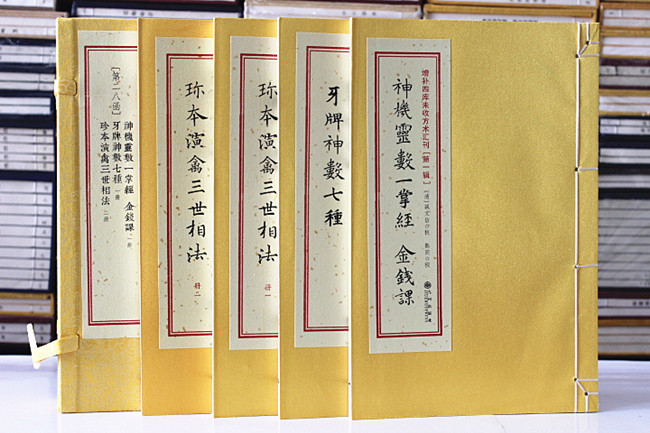 增补四库未收方术汇刊〔第一辑〕
神機靈數一掌經 金錢課
牙牌神數七種
珎本演禽三世相法
册一
珎本演禽三世相法
册二
〔第二八函〕
神機靈數一掌經 金錢課 一册
牙牌神數七種 一册
珍本演禽三世相法 二册